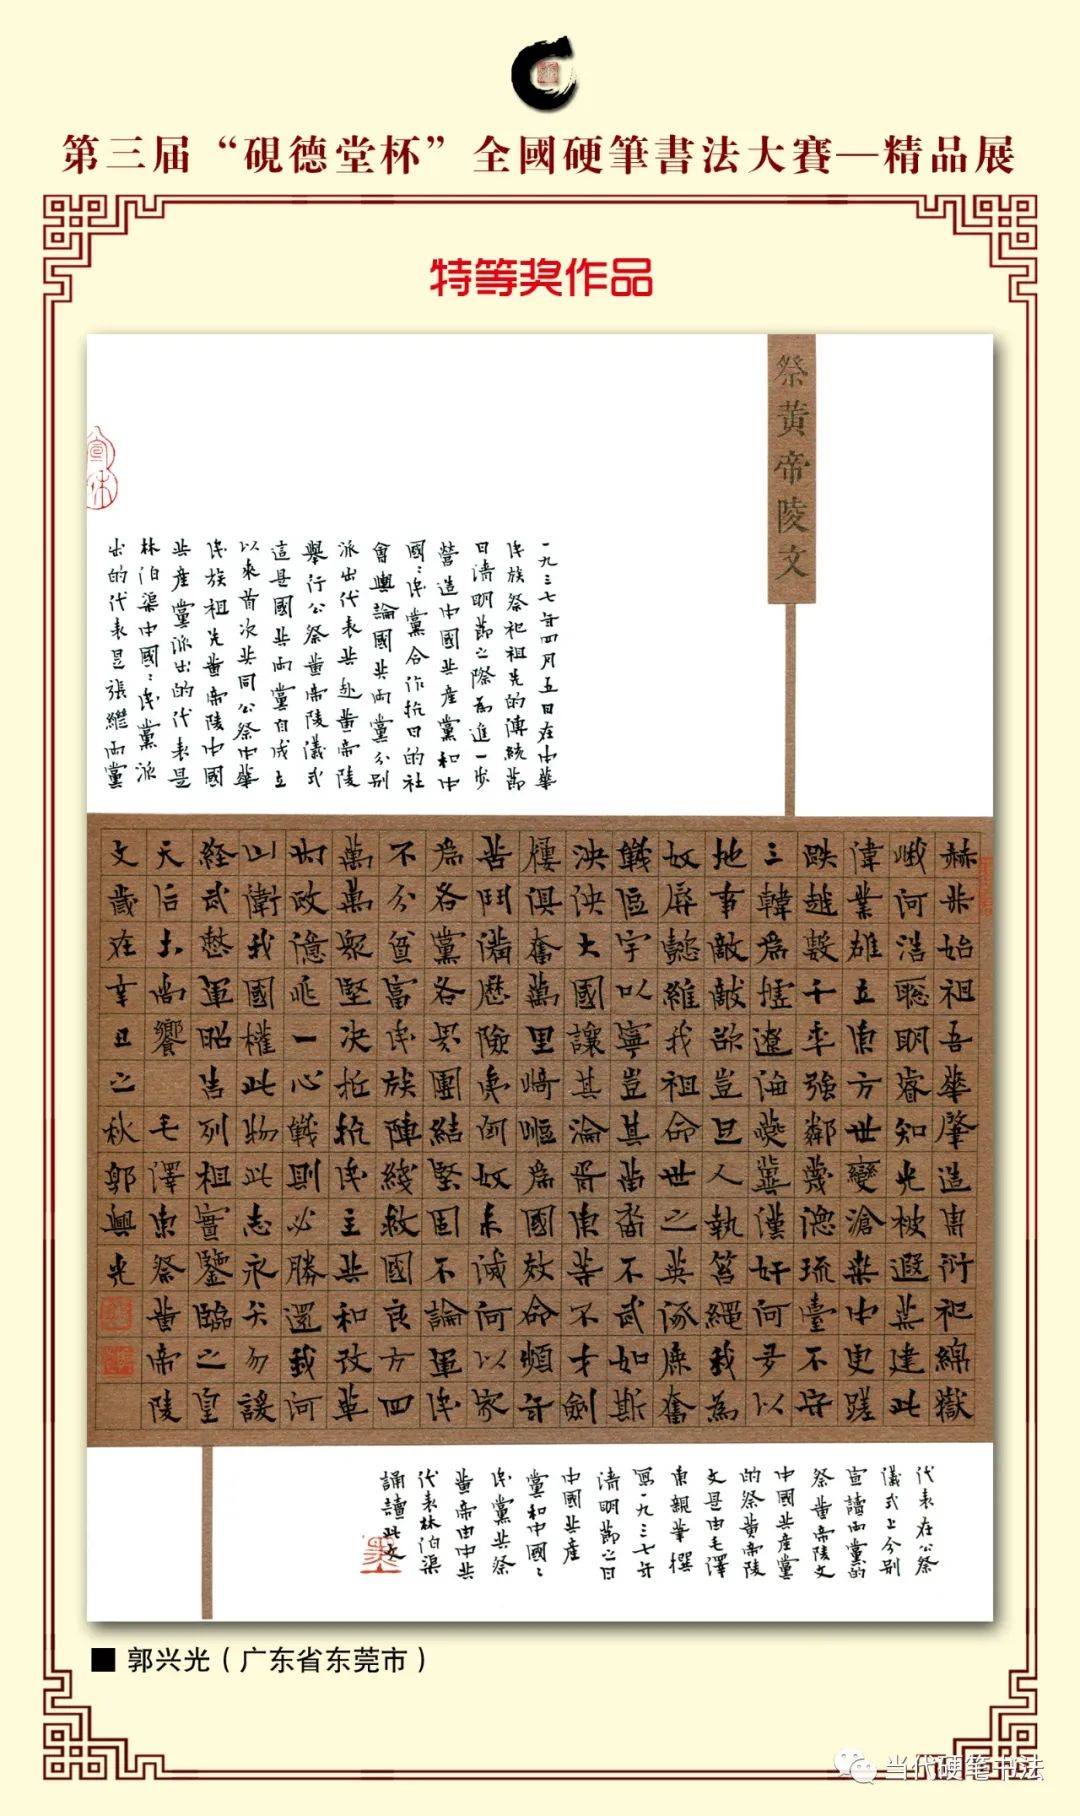 第三届“硯德堂杯”全國硬筆書法大賽—精品展
特等奖作品
祭黃帝陵文
一九三七年四月五日在中華
民族祭祀祖先的傳統節
日清明節之際為進一步
營造中國共產黨和中
國〻民黨合作抗日的社
會輿論國共兩黨分別
派出代表共赴黃帝陵
舉行公祭黃帝陵儀式
這是國共兩黨自成立
以來首次共同公祭中華
民族祖先黃帝陵中國
共產黨派出的代表是
林伯渠中國〻民黨派
出的代表是張繼兩黨
赫赫始祖吾華肇造冑衍祀綿嶽
峨河浩聰明睿知光被遐荒建此
偉業雄立東方世變滄桑中更蹉
跌越數千年強鄰蔑德琉臺不守
三韓為墟遼海燕冀漢奸何多以
地事敵敵欲豈足人執笞繩我為
奴辱懿維我祖命世之英涿鹿奮
戰區宇以寧豈其苗裔不武如斯
泱泱大國讓其淪胥東等不才劍
屨俱奮萬里崎嶇為國效命頻年
苦鬥備歷險夷匈奴未滅何以家
為各黨各界團結堅固不論軍民
不分貧富民族陣綫救國良方四
萬萬眾堅決抵抗民主共和改革
內政億兆一心戰則必勝還我河
山衛我國權此物此志永矢勿諼
經武整軍昭告列祖實鑒臨之皇
天后土尚饗 毛澤東祭黃帝陵
文歲在辛丑之秋郭興光
代表在公祭
儀式上分別
宣讀兩黨的
祭黃帝陵文
中國共產黨
的祭黃帝陵
文是由毛澤
東親筆撰
寫一九三七年
清明節之日
中國共產
黨和中國〻
民黨共祭
黃帝由中共
代表林伯渠
誦讀此文
■ 郭兴光（广东省东莞市）
当代硬笔书法